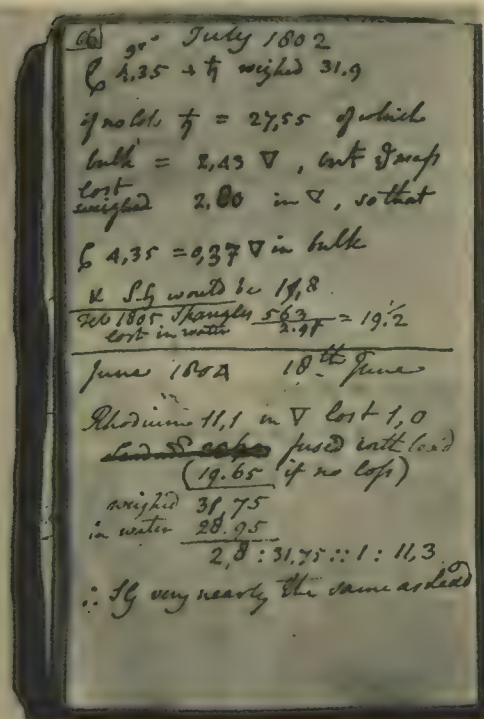 66 gr. July 1802
C 4,35 + ♄ weighed 31.9
if no loss ♄ = 27,55 of which
bulk = 2,43 ∇, but ye mass
lost
weighed 2.80 in ∇, so that
C 4,35 = 0,37 ∇ in bulk
& S.G would be 11,8
Feb 1805 Spangles 563 / 2.98 = 19.2
lost in water
June 1804 18th June
Rhodium 11,1 in ∇ lost 1,0
fused with lead
(19.65 if no loss)
weighed 31,75
in water 28.95
2,8 : 31,75 :: 1 : 11,3
∴ SG very nearly the same as lead